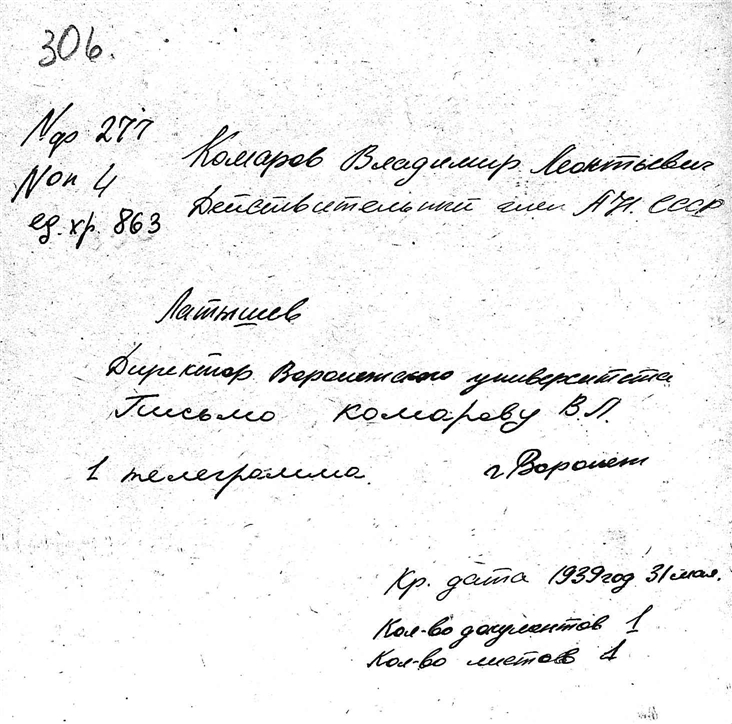 306.
№ф 277
№оп 4
ед. хр. 863
Комаров Владимир Леонтьевич
Действительный член АН. СССР
Латышев
Директор Воронежского университета
Письмо Комарову В.Л.
1 телеграмма.
г Воронеж
Кр. дата 1939год 31 мая.
Кол-во документов 1
Кол-во листов 1